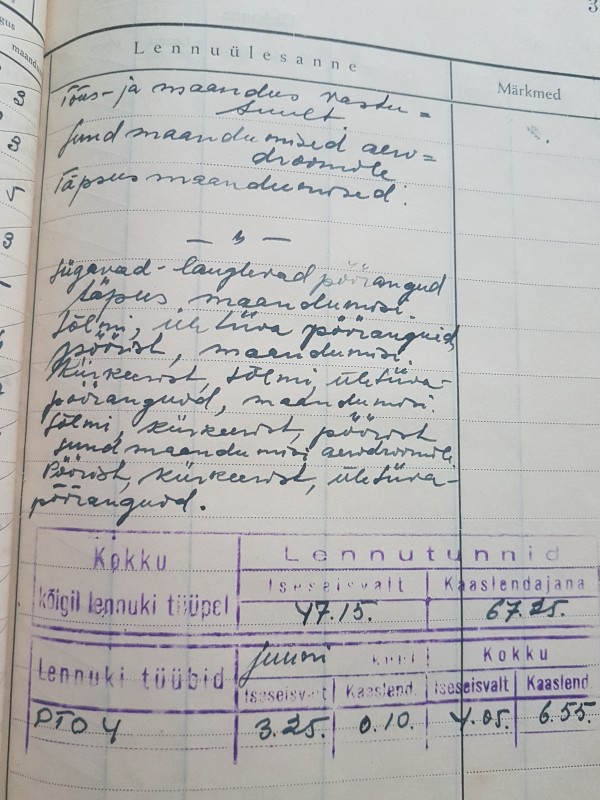 3
gus
maandu
Lennuülesanne
Märkmed
3
Tõus- ja maandus vastu=
tuult
3
Sund maandumised aero=
droomile
5
Täpsus maandumised.
3
— " —
Sügavad-lauglevad pöörangud
täpsus maandumisi.
Sõlmi, ületiiva pööranguid,
pöörist, maandumisi.
Kürkeerist, sõlmi, ületiiva-
pööranguid, maandumisi.
Sõlmi, kürkeerist, pöörist
sund maandumisi aerodroomile.
Pöörist, kürkeerist, ületiiva-
pööranguid.
Kokku
kõigil lennuki tüüpel
Lennutunnid
Iseseisvalt Kaaslendajana
47.15. 67.25.
Lennuki tüübid
Juuni Kokku
Iseseisvalt Kaaslend. Iseseisvalt Kaaslend.
PTO 4 3.25. 0.10. 4.05. 6.55.